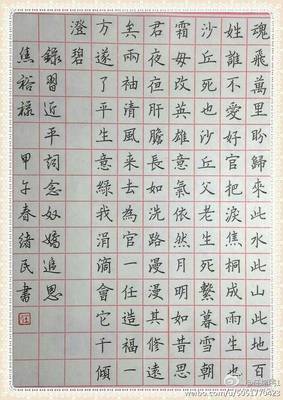 魂飛萬里盼歸來此水此山此地百
姓誰不愛好官把淚焦桐成雨生也
沙丘死也沙丘父老生死繫暮雪朝
霜毋改英雄意氣依然月明如昔思
君夜夜肝膽長如洗路漫漫其修遠
矣兩袖清風來去為官一任造福一
方遂了平生意綠我涓滴會它千頃
澄碧
錄習近平詞念奴嬌追思
焦裕祿 甲午春緒民書